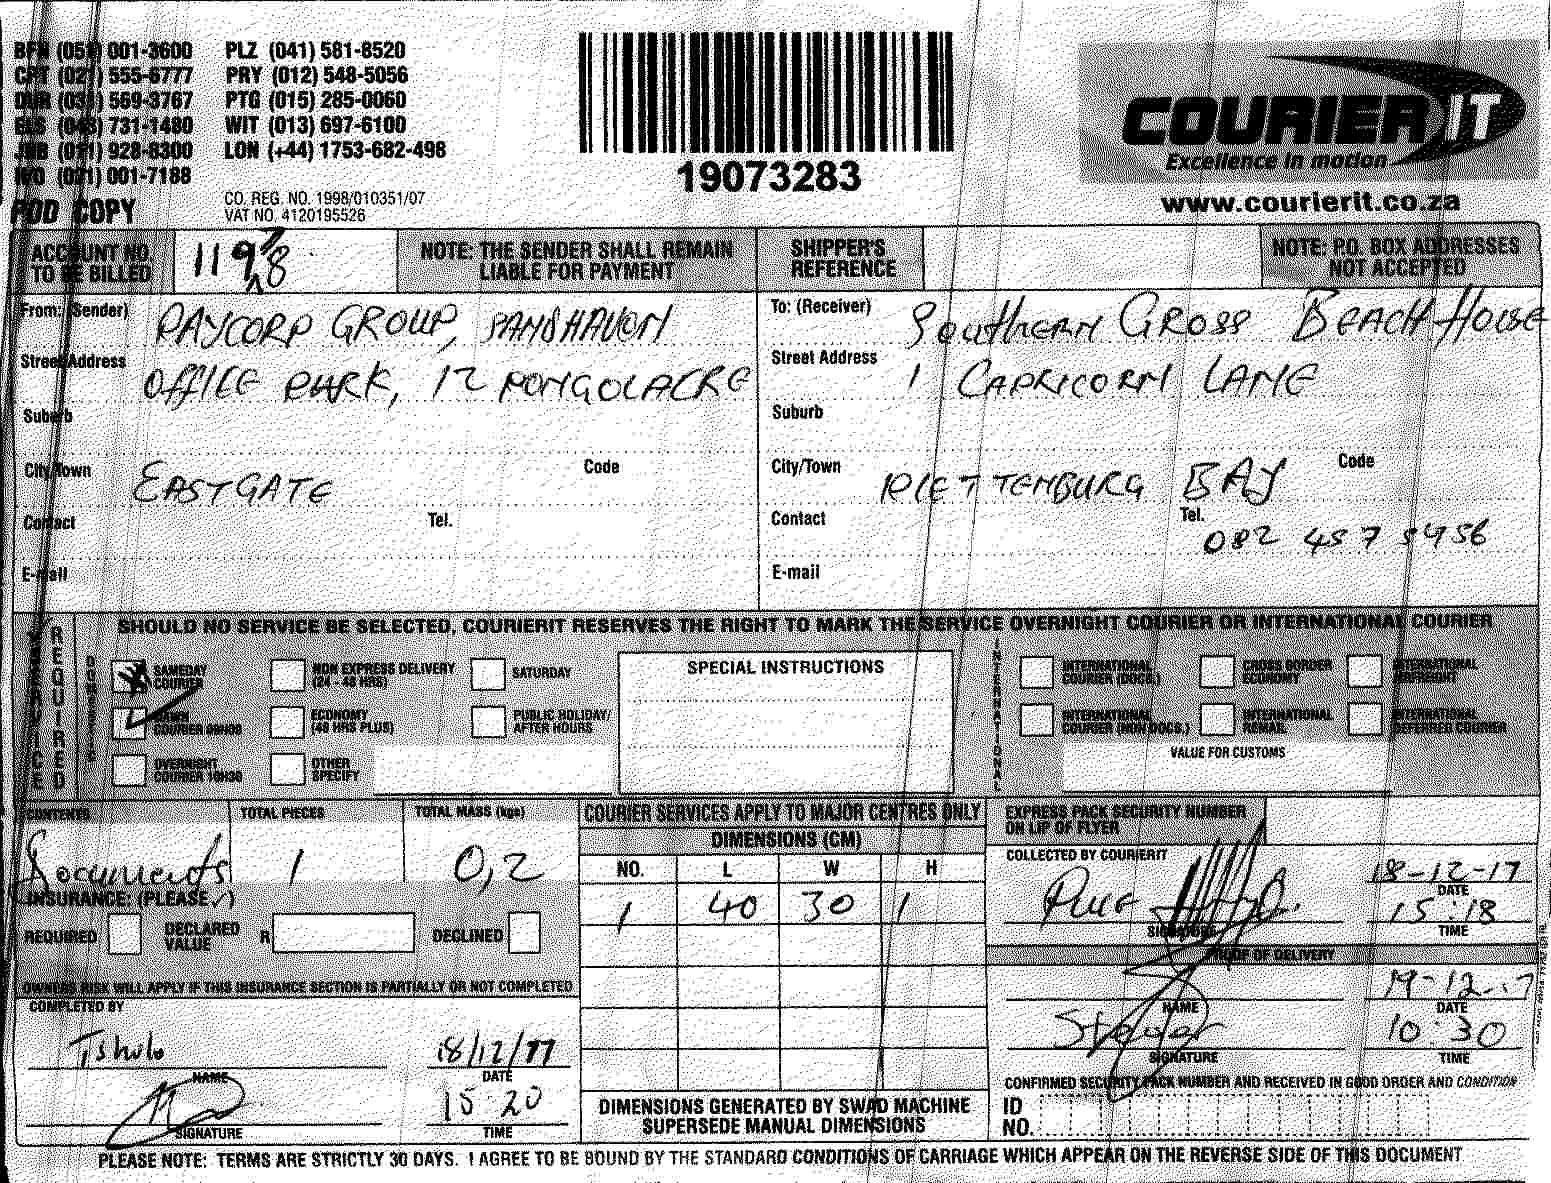 BFN (051) 001-3600 PLZ (041) 581-8520
CPT (021) 555-6777 PRY (012) 548-5056
DUR (031) 569-3767 PTG (015) 285-0060
ELS (043) 731-1480 WIT (013) 697-6100
JNB (011) 928-8300 LON (+44) 1753-682-498
(021) 001-7188
POD COPY
CO. REG. NO. 1998/010351/07
VAT NO. 4120195526
19073283
COURIER IT
Excellence in motion
www.courierit.co.za
ACCOUNT NO. TO BE BILLED
11978
NOTE: THE SENDER SHALL REMAIN LIABLE FOR PAYMENT
SHIPPER'S REFERENCE
NOTE: P.O. BOX ADDRESSES NOT ACCEPTED
From: (Sender) PAYCORP GROUP,
Street Address OFFICE PARK, 12 PONGOLACRE
Suburb
City/Town EASTGATE Code
Contact Tel.
E-mail
To: (Receiver) SOUTHERN CROSS BEACH HOUSE
Street Address 1 CAPRICORN LANE
Suburb
City/Town PLETTENBURG BAY Code
Contact Tel. 082 457 5456
E-mail
SERVICE REQUIRED
DOMESTIC
SHOULD NO SERVICE BE SELECTED, COURIERIT RESERVES THE RIGHT TO MARK THE SERVICE OVERNIGHT COURIER OR INTERNATIONAL COURIER
SAMEDAY COURIER
NON EXPRESS DELIVERY (24 - 48 HRS)
SATURDAY
DAWN COURIER 09H00
ECONOMY (48 HRS PLUS)
PUBLIC HOLIDAY/ AFTER HOURS
OVERNIGHT COURIER 10H30
OTHER SPECIFY
SPECIAL INSTRUCTIONS
INTERNATIONAL
INTERNATIONAL COURIER (DOCS.)
CROSS BORDER ECONOMY
INTERNATIONAL AIRFREIGHT
INTERNATIONAL COURIER (NON DOCS.)
INTERNATIONAL REMAIL
INTERNATIONAL DEFERRED COURIER
VALUE FOR CUSTOMS
CONTENTS TOTAL PIECES TOTAL MASS (kgs)
Documents 1 0,2
INSURANCE: (PLEASE ✓)
REQUIRED DECLARED VALUE R DECLINED
OWNERS RISK WILL APPLY IF THIS INSURANCE SECTION IS PARTIALLY OR NOT COMPLETED
COMPLETED BY
Tshulo 18/12/17
NAME DATE
15 20
SIGNATURE TIME
COURIER SERVICES APPLY TO MAJOR CENTRES ONLY
DIMENSIONS (CM)
NO. L W H
1 40 30 1
DIMENSIONS GENERATED BY SWAD MACHINE SUPERSEDE MANUAL DIMENSIONS
EXPRESS PACK SECURITY NUMBER ON LIP OF FLYER
COLLECTED BY COURIERIT
18-12-17
DATE
15:18
SIGNATURE TIME
PROOF OF DELIVERY
19-12-17
NAME DATE
10:30
SIGNATURE TIME
CONFIRMED SECURITY PACK NUMBER AND RECEIVED IN GOOD ORDER AND CONDITION
ID NO.
PLEASE NOTE: TERMS ARE STRICTLY 30 DAYS. I AGREE TO BE BOUND BY THE STANDARD CONDITIONS OF CARRIAGE WHICH APPEAR ON THE REVERSE SIDE OF THIS DOCUMENT